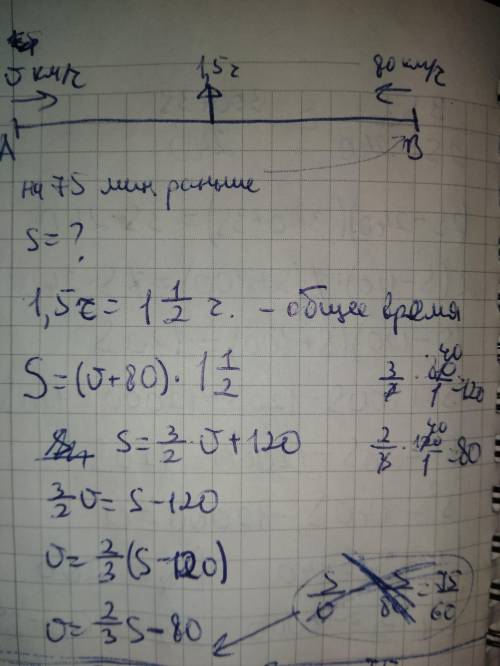 υ км/ч 1,5 ч 80 км/ч
A B
на 75 мин раньше
S = ?
1,5 ч = 1 1/2 ч. – общее время
S = (υ + 80) · 1 1/2
3/2 · 80/1 = 120
40
S = 3/2 · υ + 120
2/3 · 120/1 = 80
40
3/2 υ = S – 120
υ = 2/3 (S – 120)
υ = 2/3 S – 80
S/υ S/80 = 75/60